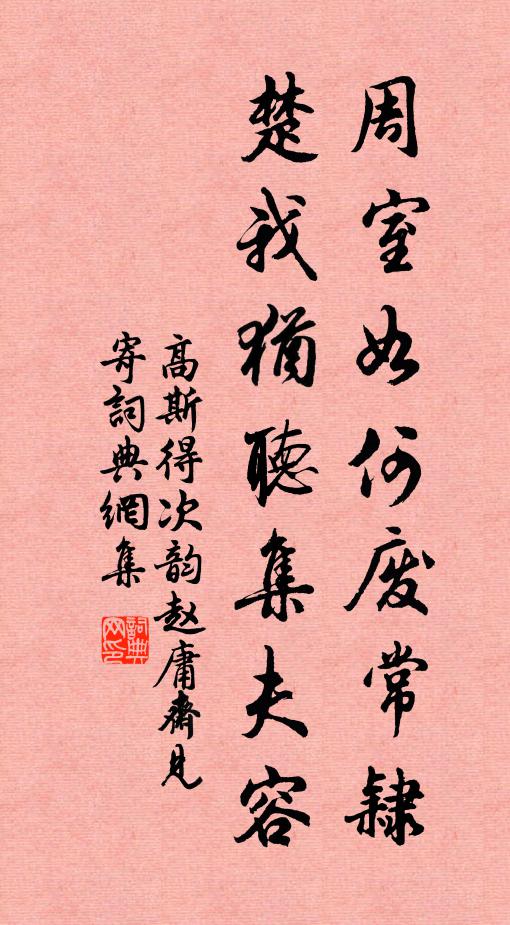 周室如何废常隸
楚我猶聽集夫容
高斯得次韵赵庸齋見
寄詞典網集
詞典网印